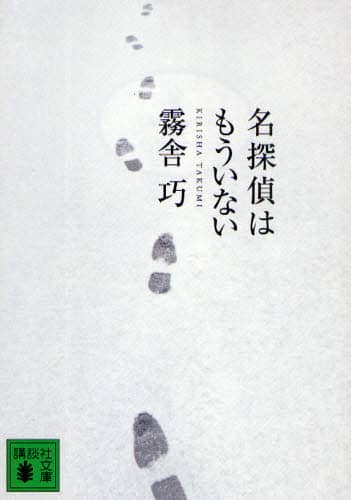 名探偵は
もういない
霧舎 巧
KIRISHA TAKUMI
講談社
文庫